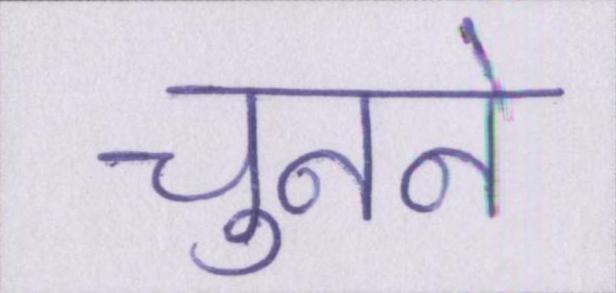 चुनने